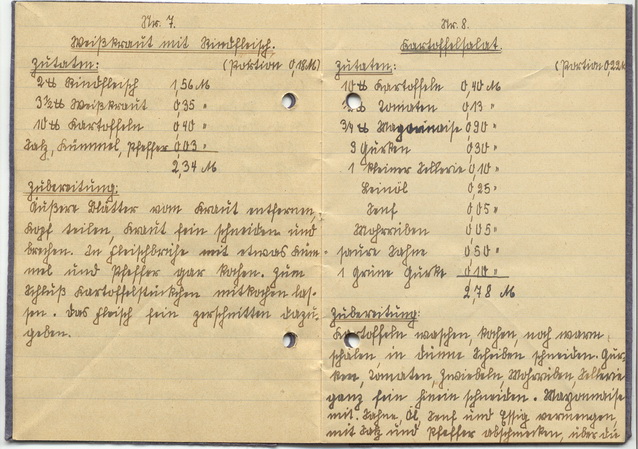 Nr. 7.
Weißkraut mit Rindfleisch.
Zutaten: (Portion 0,18 M)
2 ℔ Rindfleisch 1,56 M
3½ ℔ Weißkraut 0,35 "
10 ℔ Kartoffeln 0,40 "
Salz, Kümmel, Pfeffer 0,03 "
2,34 M
Zubereitung:
Äußere Blätter vom Kraut entfernen,
Kopf teilen, Kraut fein schneiden und
brechen. In Fleischbrühe mit etwas Küm-
mel und Pfeffer gar kochen. Zum
Schluß Kartoffelstückchen mitkochen las-
sen. Das Fleisch fein zerschnitten dazu-
geben.
Nr. 8.
Kartoffelsalat.
Zutaten: (Portion 0,22 M
10 ℔ Kartoffeln 0,40 M
℔ Tomaten 0,13 "
3/4 ℔ Mayonnaise 0,90 "
3 Gurken 0,30 "
1 kleiner Sellerie 0,10 "
Leinöl 0,25 "
Senf 0,05 "
Mohrriben 0,05 "
saure Sahne 0,50 "
1 grine Gurke 0,10 "
2,78 M
Zubereitung:
Kartoffeln waschen, kochen, noch warm
schälen, in dünne Scheiben schneiden. Gur-
ken, Tomaten, Zwiebeln, Mohrriben, Sellerie
ganz fein hinein schneiden. Mayonnaise
mit Sahne, Öl, Senf und Essig vermengen
mit Salz und Pfeffer abschmecken, über die